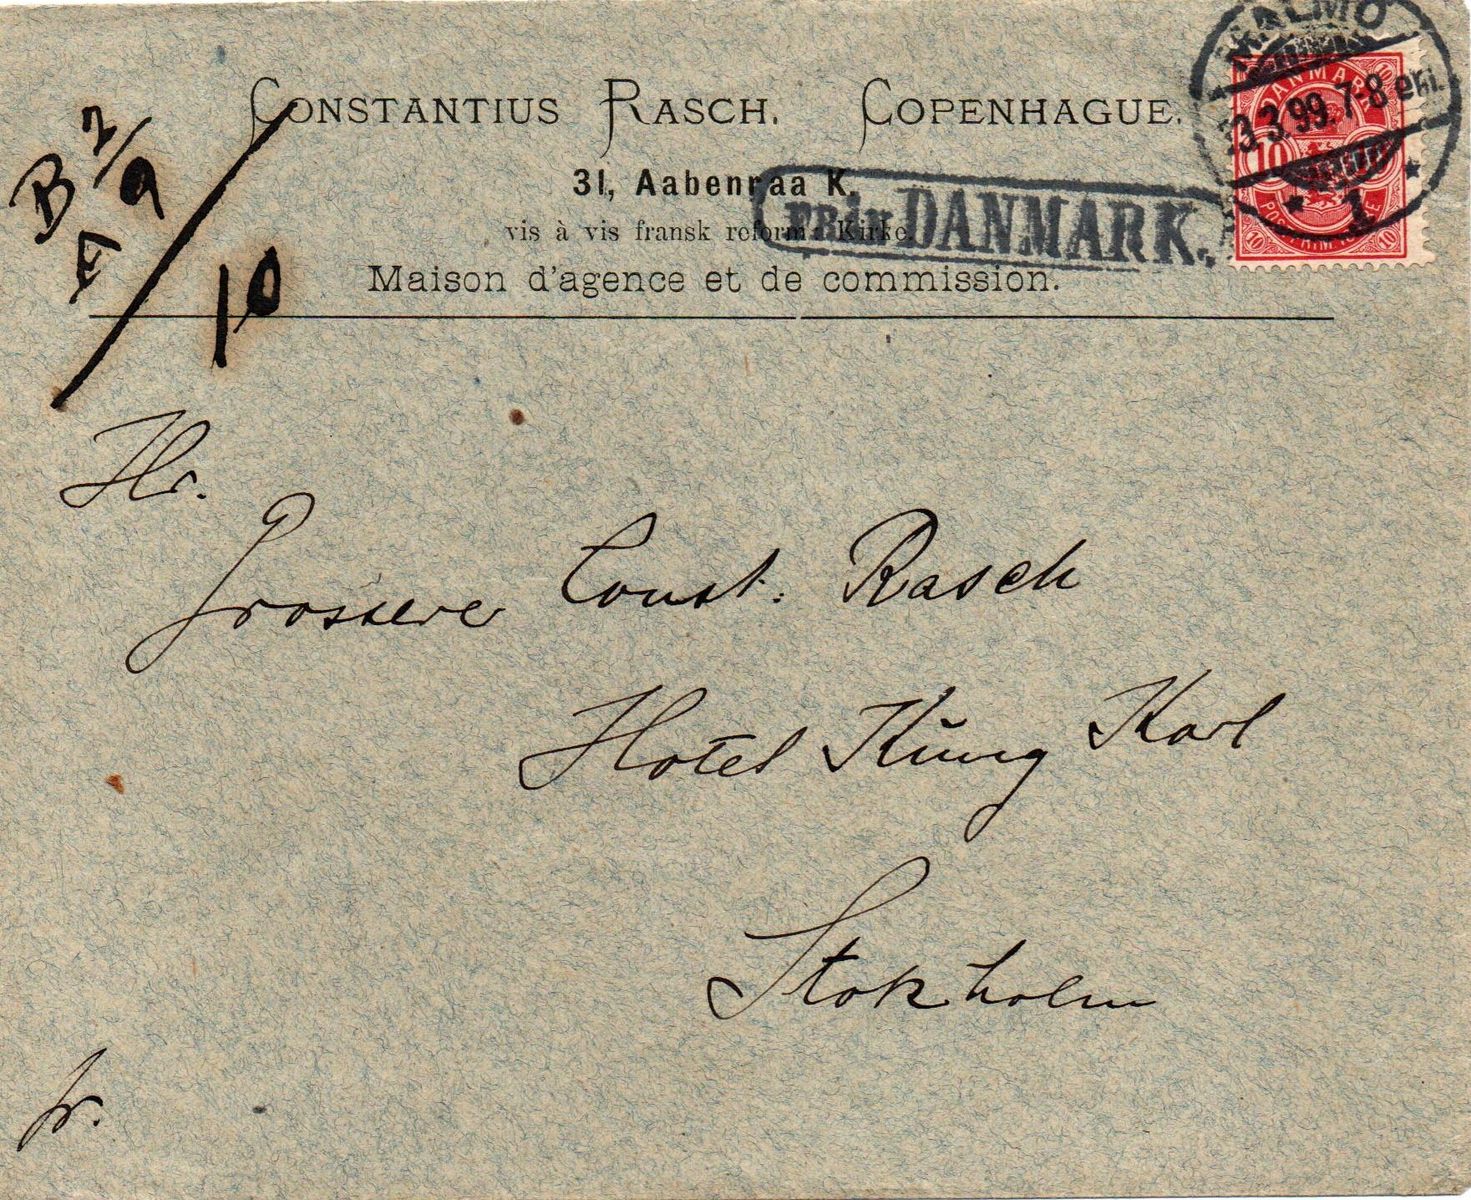 MALMÖ
23.3.99. 7-8 em.
1
DANMARK
10 10
10
10 10
CONSTANTIUS RASCH. COPENHAGUE.
31, Aabenraa K.
vis à vis fransk reform: Kirke.
Maison d'agence et de commission.
FRÅN DANMARK.
B
9
10
Hr.
Grosserer Const. Rasch
Hotel Kŭng Karl
Stokholm
fr.